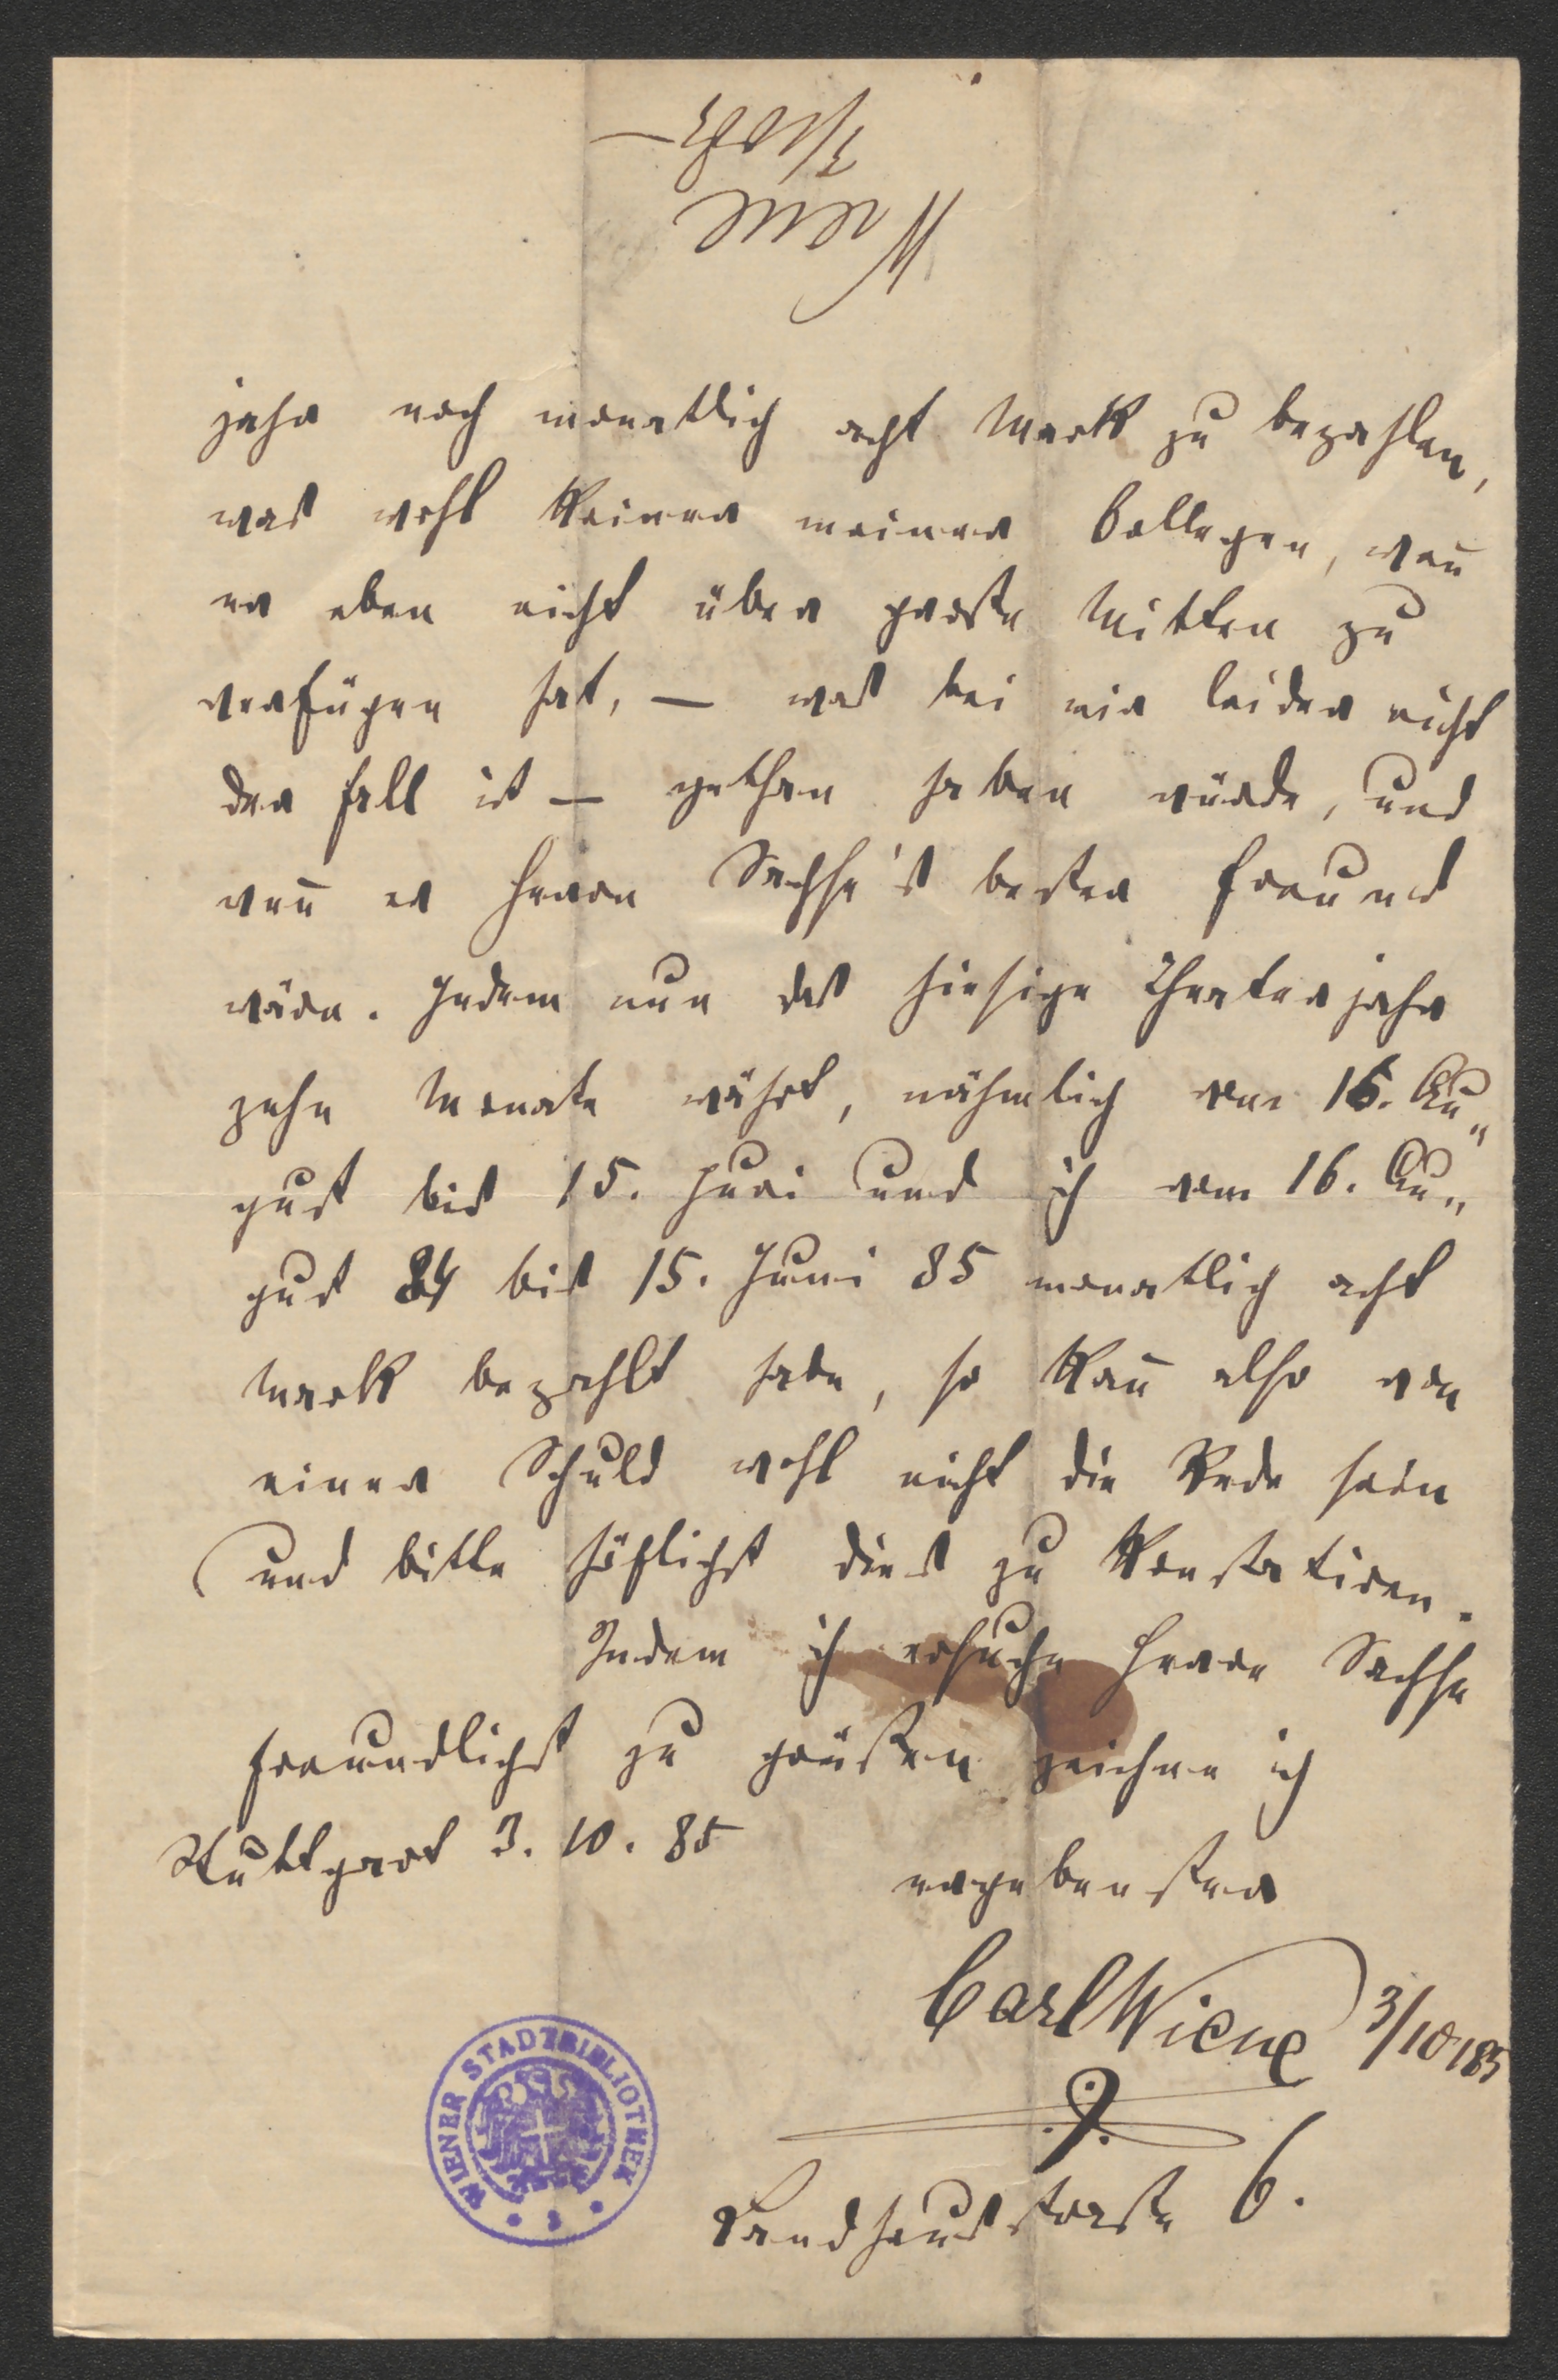 Wiene
3/10 85
jahr noch monatlich acht Mark zu bezahlen,
was wohl keiner meiner Collegen, weñ
er eben nicht über große Mitteln zu
verfügen hat, — was bei mir leider nicht
der Fall ist — gethan haben würde, und
weñ er Herrn Sachse's bester Freund
wäre. Indem nun das hiesige Theaterjahr
zehn Monate währt, nähmlich vom 16. Au„
gust bis 15. Juni und ich vom 16. Au„
gust 84 bis 15. Juni 85 monatlich acht
Mark bezahlt habe, so kañ also von
einer Schuld wohl nicht die Rede sein
und bitte höflichst dies zu konstatiren.
Indem ich ersuche Herrn Sachse
freundlichst zu grüßen zeichne ich
Stuttgart 3. 10. 85
ergebenster
Carl Wiene 3/10 85
Landhausstraße 6.
WIENER STADTBIBLIOTHEK